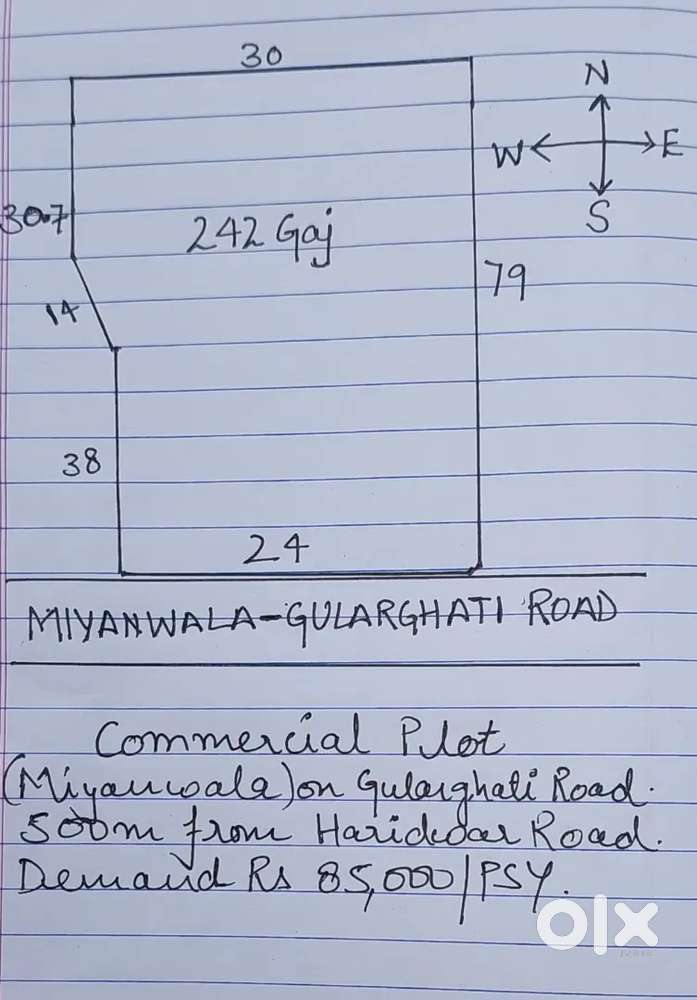 30
N
W E
S
30.7
242 Gaj
79
14
38
24
MIYANWALA-GULARGHATI ROAD
Commercial Plot
(Miyanwala) on Gularghati Road.
500m from Haridwar Road.
Demand Rs 85,000/PSY.
olx